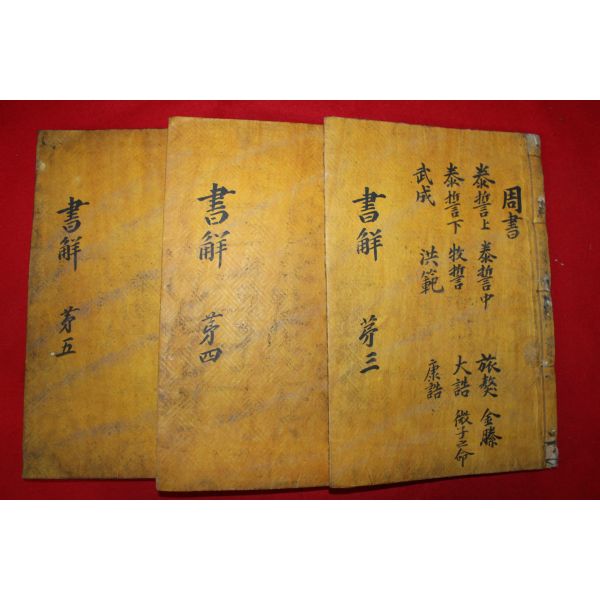 周書
泰誓上 泰誓中 旅獒 金縢
泰誓下 牧誓 大誥 微子之命
武成 洪範 康誥
書解 第三
書解 第四
書解 第五